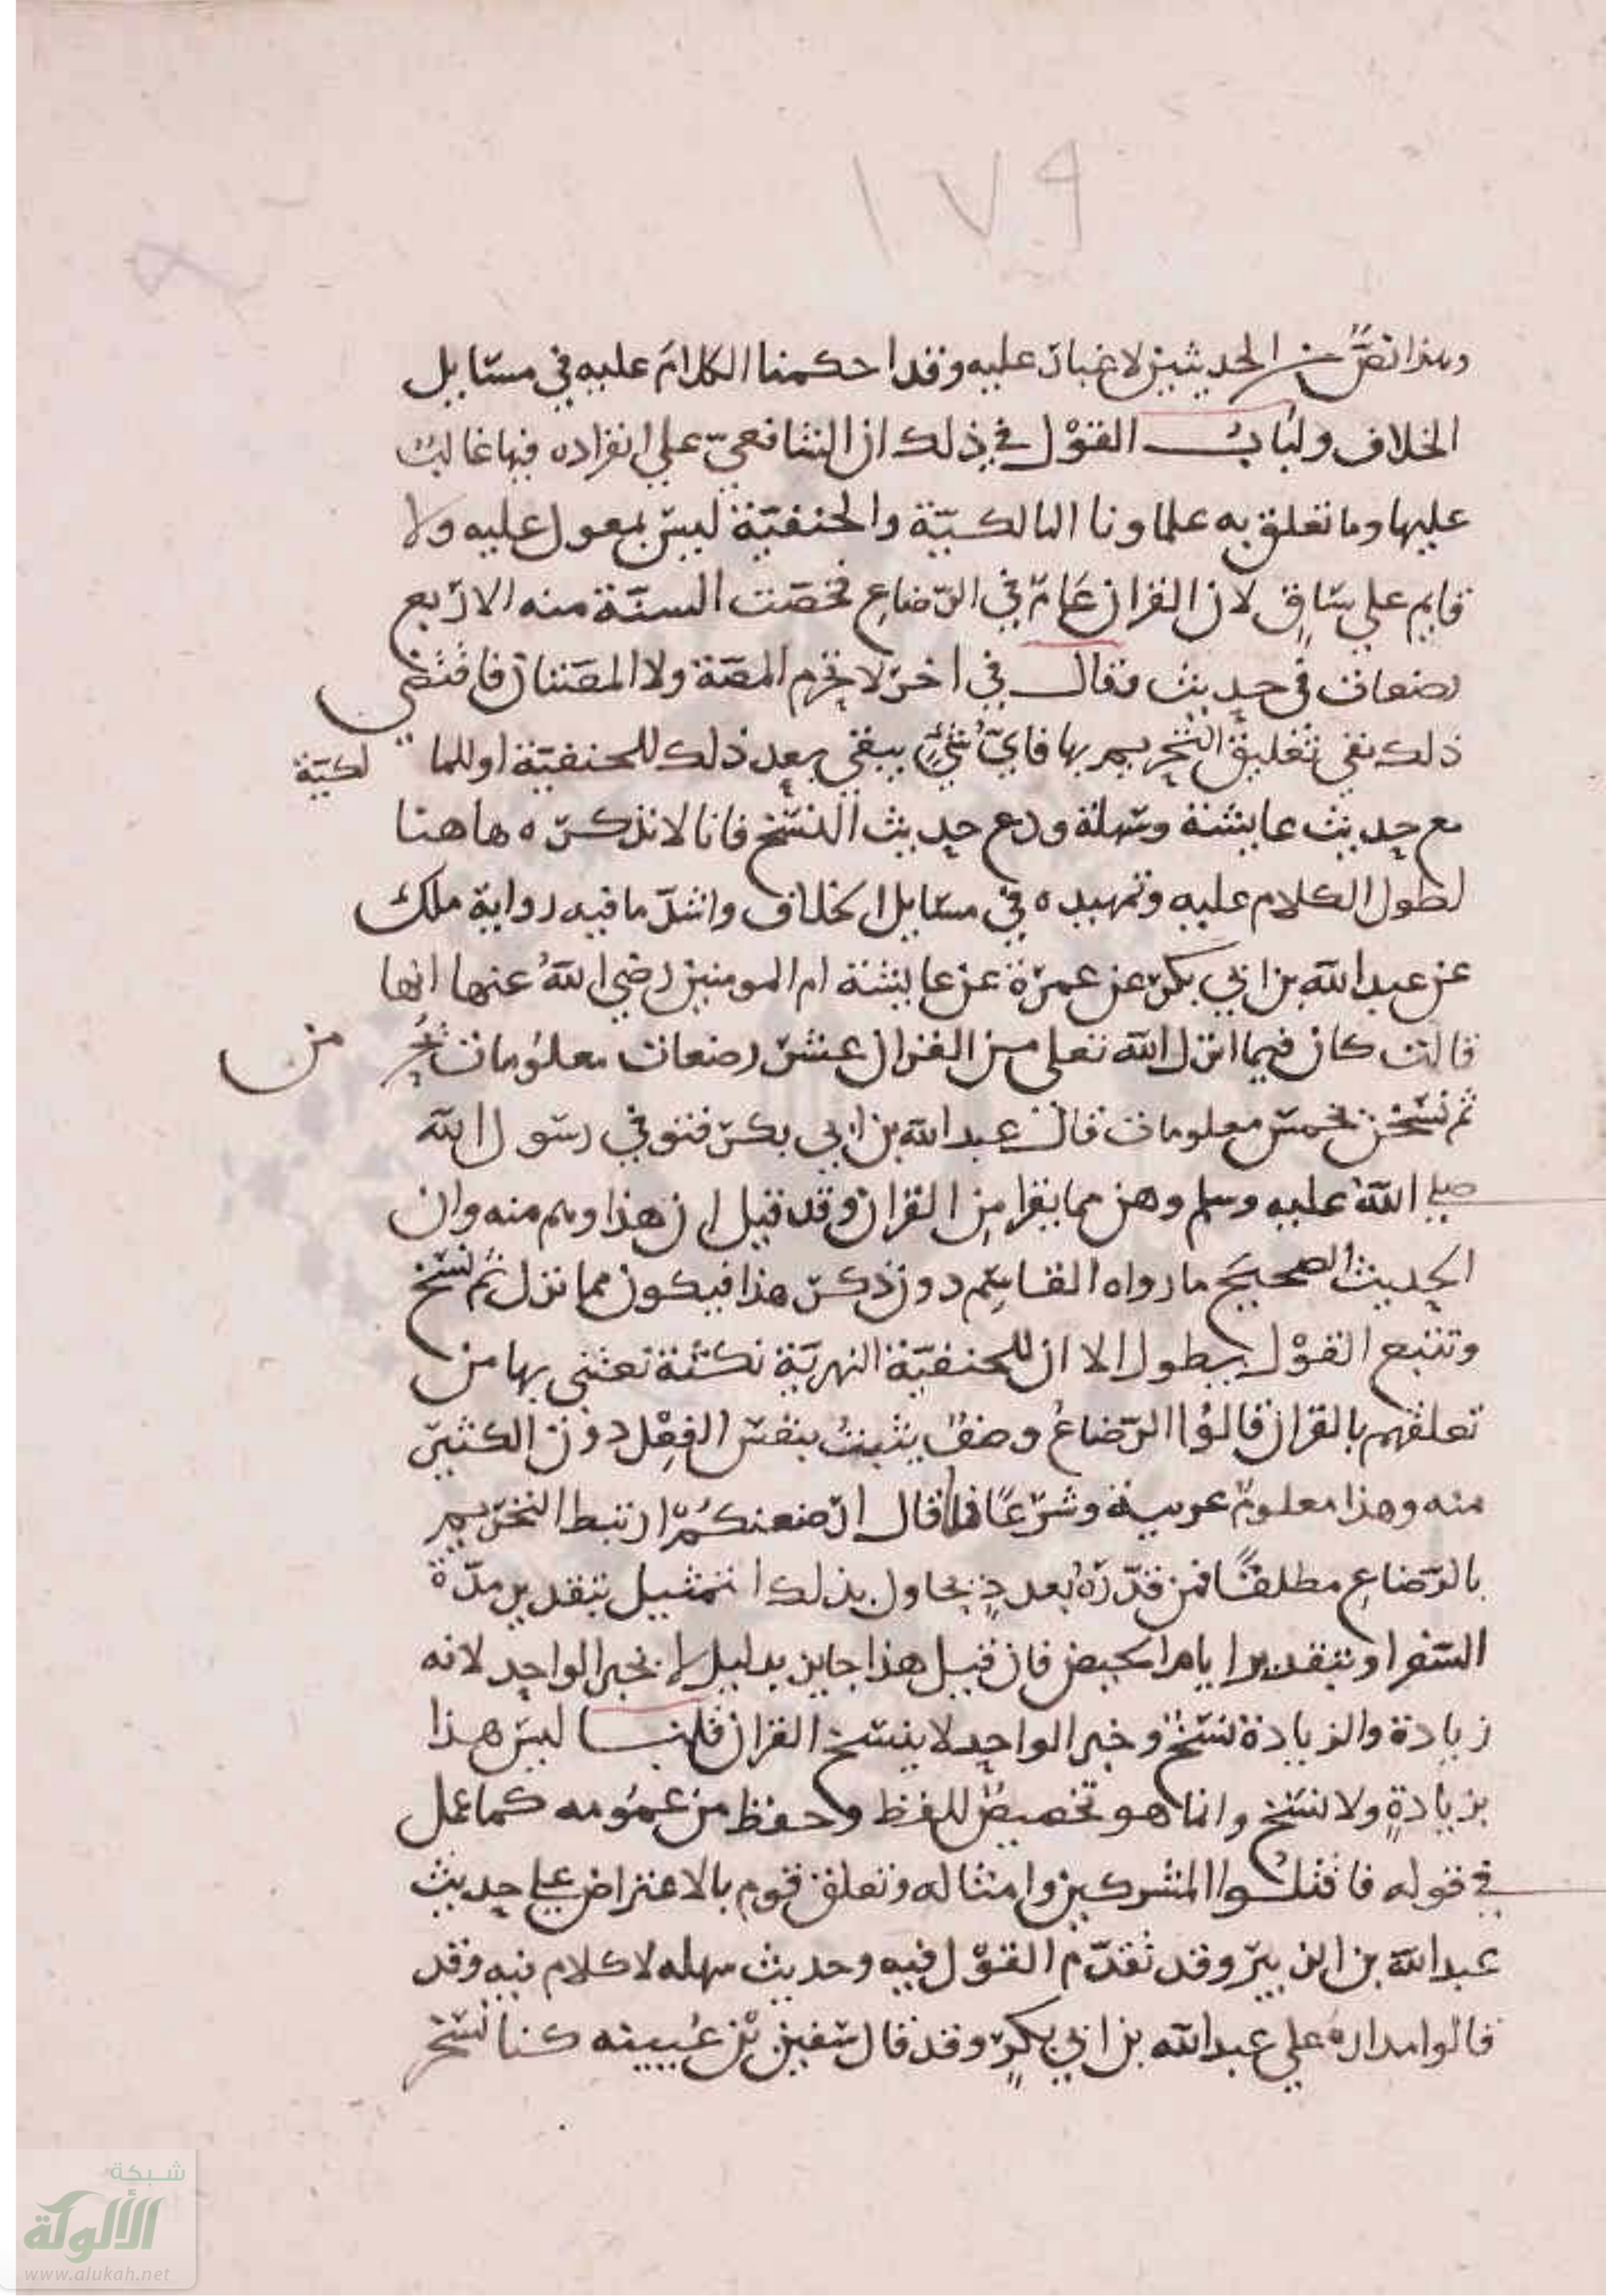 ١٧٩
وهذا نص من الحديثين لا غبار عليه وقد احكمنا الكلام عليه في مسايل
الخلاف ولباب القول في ذلك ان الشافعي على انفراده فيها غالب
عليها وما تعلق به علماونا المالكية والحنفية ليس بمعول عليه ولا
قايم على ساق لان القران عام في الرضاع فخصت السنة منه الاربع
رضعات في حديث وقال في اخر لا تحرم المصة ولا المصتان فاقتضى
ذلك نفي تعليق التحريم بها فاي شيء يبقى بعد ذلك للحنفية او للما لكية
مع حديث عايشة وسهلة ودع حديث النسخ فانا لا نذكره هاهنا
لطول الكلام عليه وتمهيده في مسايل الخلاف واشد ما فيه رواية ملك
عن عبد الله بن ابي بكر عن عمرة عن عايشة ام المومنين رضي الله عنها انها
قالت كان فيما انزل الله تعلى من القران عشر رضعات معلومات يحر من
ثم نسخن بخمس معلومات قال عبد الله بن ابي بكر فتوفي رسول الله
صلى الله عليه وسلم وهن مما يقرا من القران وقد قيل ان هذا وهم منه وان
الحديث الصحيح ما رواه القاسم دون ذكر هذا فيكون مما نزل ثم نسخ
وتتبع القول يطول الا ان للحنفية النهرية نكتة تعتني بها من
تعلقهم بالقران قالوا الرضاع وصف يثبت بنفس الفعل دون الكثير
منه وهذا معلوم عربية وشرعا فلما قال ارضعنكم ارتبط التحريم
بالرضاع مطلقا فمن قدره بعدد يحاول بذلك التمثيل بتقدير مدة
السفر او بتقدير ايام الحيض فان قيل هذا جايز بدليل لا بخبر الواحد لانه
زيادة والزيادة نسخ وخبر الواحد لا ينسخ القران قلنا ليس هذا
بزيادة ولا نسخ وانما هو تخصيص للفظ وحفظ من عمومه كما عمل
في قوله فاقتلوا المشركين وامثاله وتعلق قوم بالاعتراض على حديث
عبد الله بن الزبير وقد تقدم القول فيه وحديث سهله لا كلام فيه وقد
قالوا مداره على عبد الله بن ابي بكر وقد قال سفين بن عيينه كنا نسخر
شبكة
الألوكة
www.alukah.net